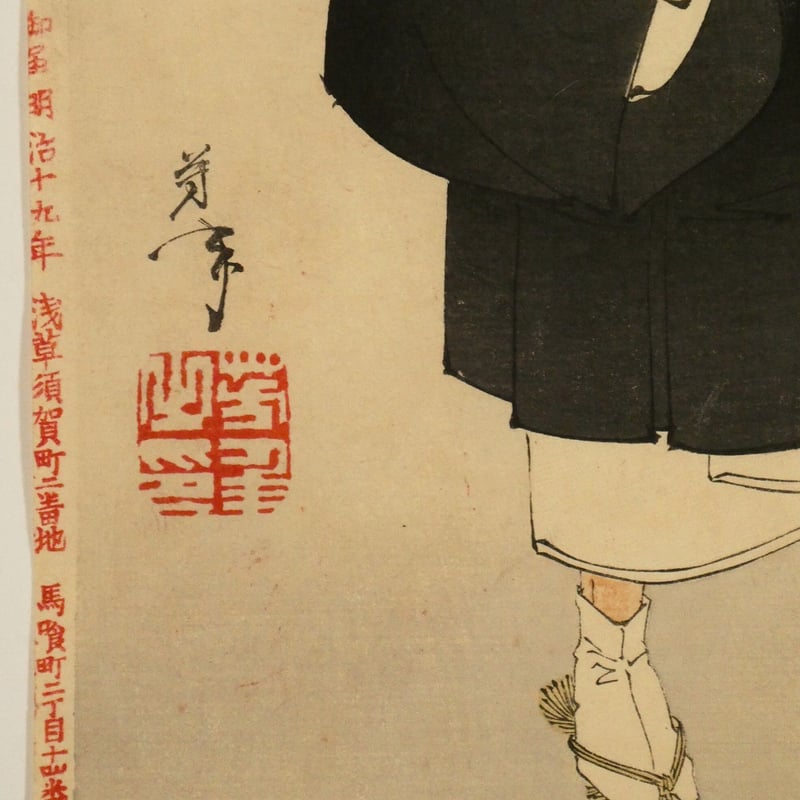 御届明治十九年 浅草須賀町二番地 馬喰町二丁目十四番
芳年